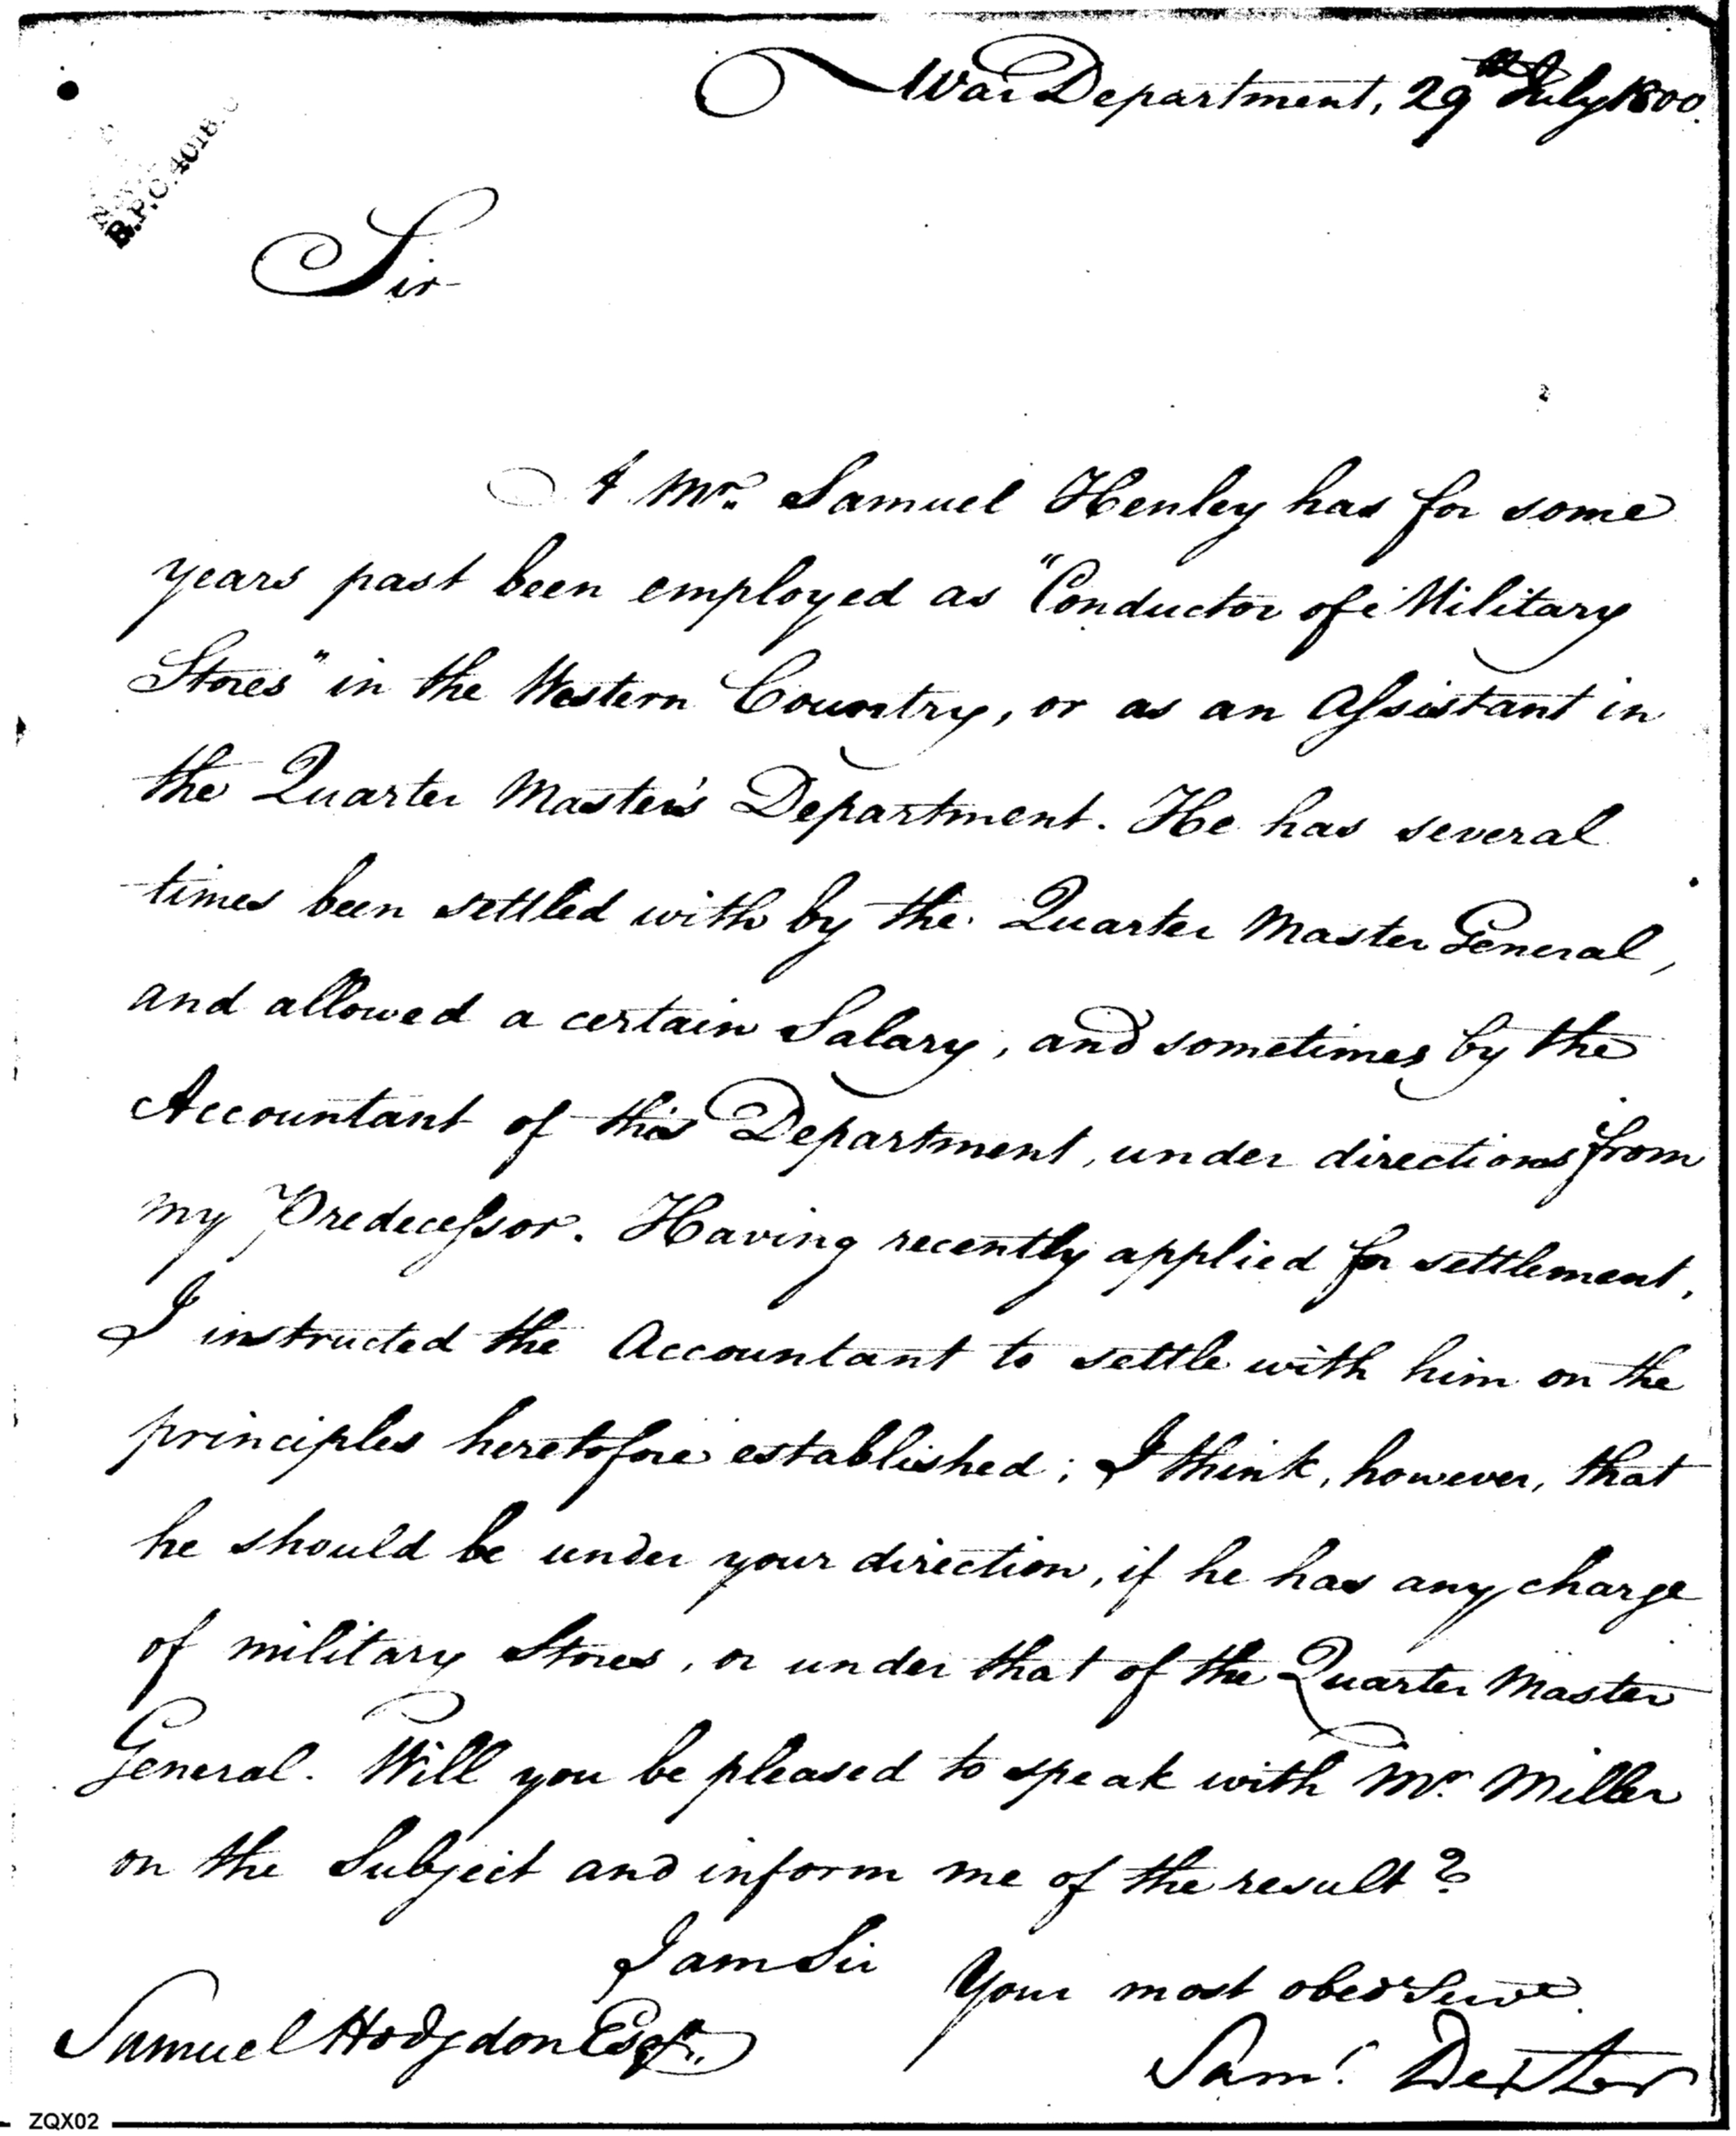 War Department, 29th July 1800.
B.P.O. 4018.
Sir
A Mr. Samuel Henley has for some
years past been employed as "Conductor of Military
Stores" in the Western Country, or as an Assistant in
the Quarter Master's Department. He has several
times been settled with by the Quarter Master General,
and allowed a certain Salary, and sometimes by the
Accountant of this Department, under directions from
my Predecessor. Having recently applied for settlement,
I instructed the Accountant to settle with him on the
principles heretofore established; I think, however, that
he should be under your direction, if he has any charge
of military Stores, or under that of the Quarter Master
General. Will you be pleased to speak with Mr. Miller
on the Subject and inform me of the result?
I am Sir
Your most obed Servt.
Samuel Hodgdon Esqr.
Saml. Dexter
ZQX02